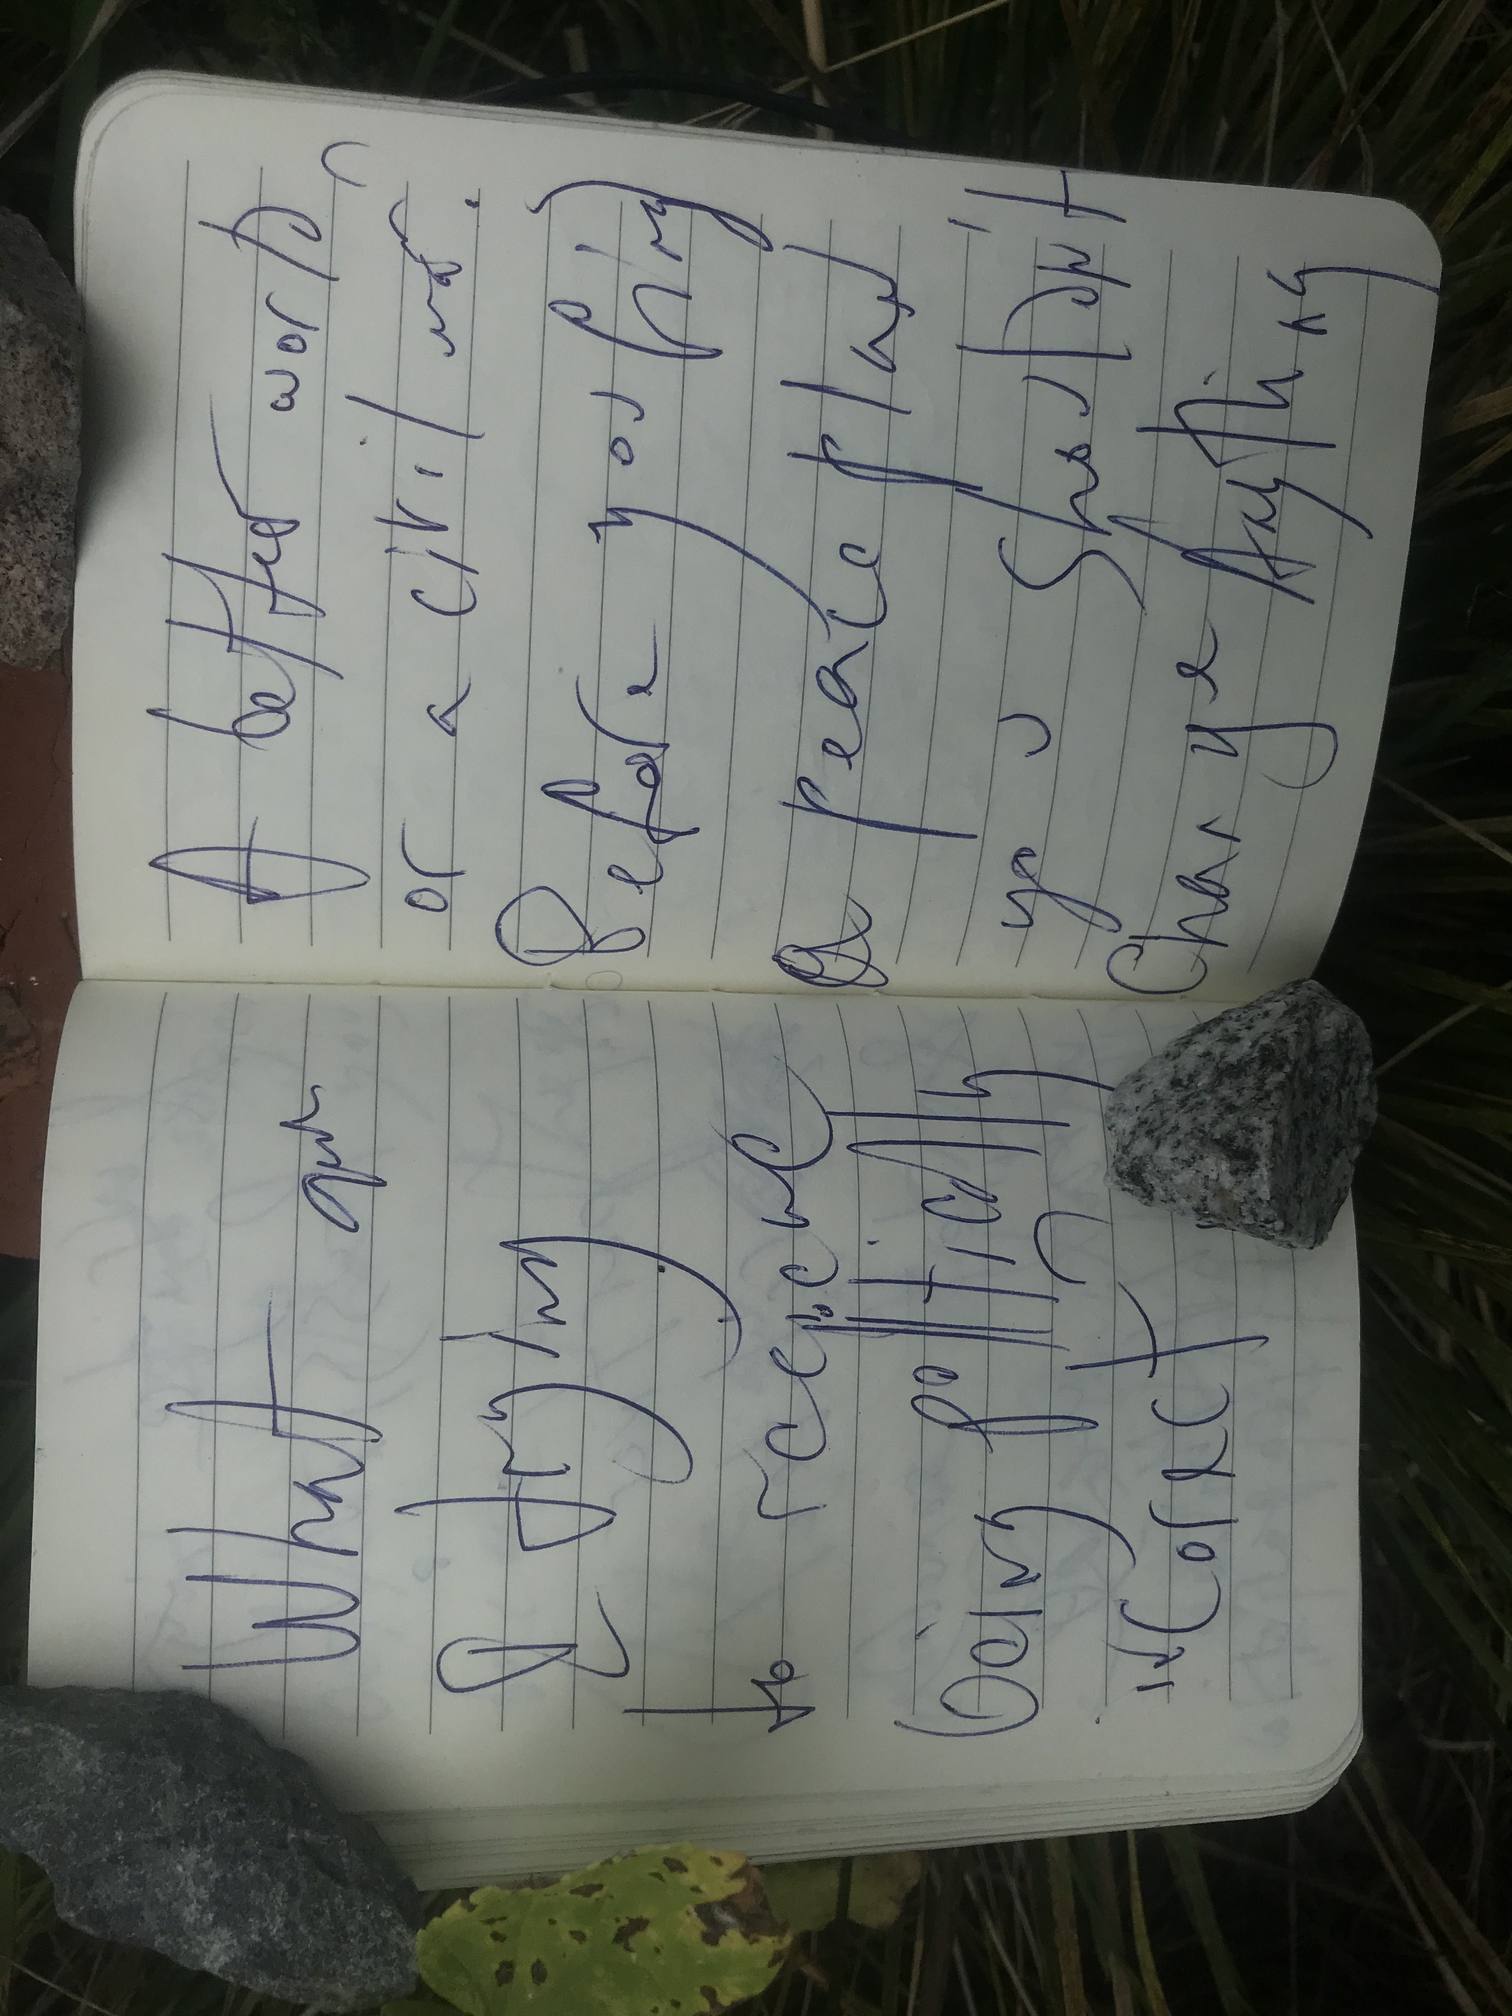 What are
& trying
to receive
Being politically
incorrect
A better world
or a civil war.
Before you bring
a peace plan
you shouldn't
change Anything